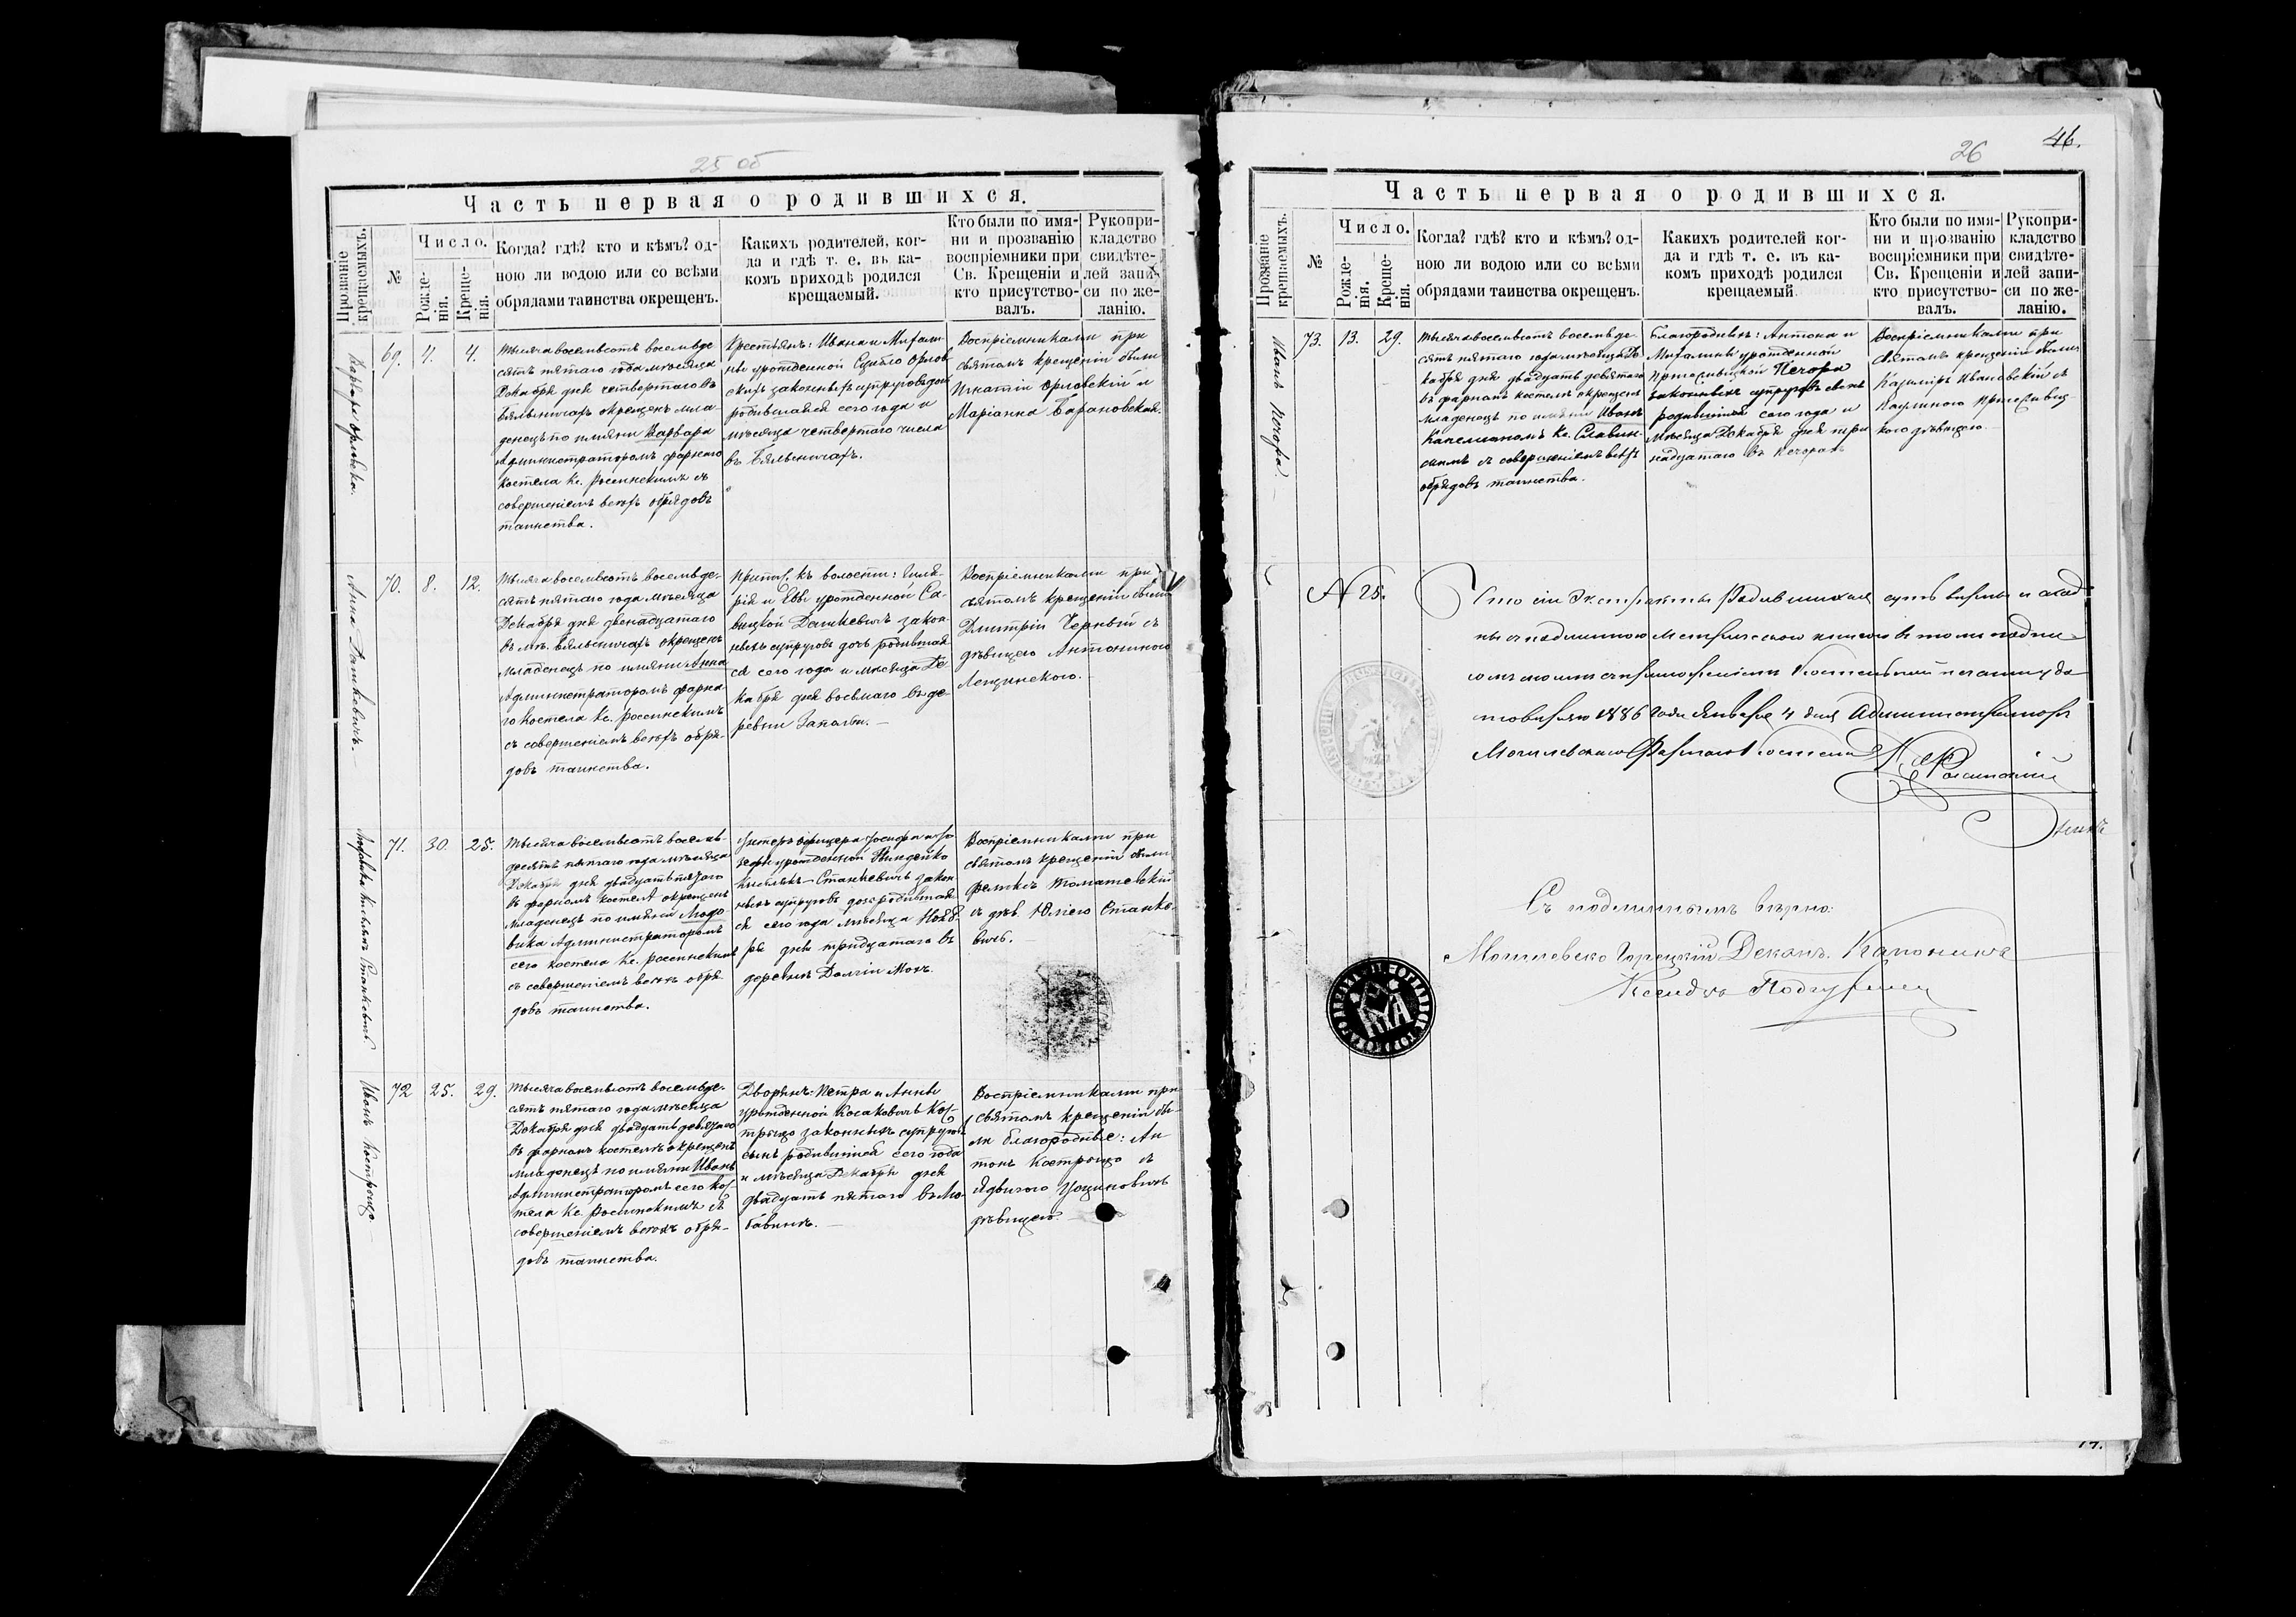 25 об
Часть первая о родившихся.
Прозваніе крещаемыхъ.
№
Число.
Рожде-
нія.
Креще-
нія.
Когда? гдѣ? кто и кѣмъ? од-
ною ли водою или со всѣми
обрядами таинства окрещенъ.
Какихъ родителей, ког-
да и гдѣ т. е. въ ка-
комъ приходѣ родился
крещаемый.
Кто были по имя-
ни и прозванію
воспріемники при
Св. Крещеніи и
кто присутство-
валъ.
Рукопри-
кладство
свидѣте-
лей запи-
си по же-
ланію.
Варвара Орловска.
69. 4. 4.
Тысяча восемьсотъ восемьде
сятъ пятаго года мѣсяца
Декабря дня четвертаго въ
Бялыничахъ окрещенъ мла-
денецъ по имяни Варвара
Администраторомъ фарнаго
костела Кс. Росинскимъ съ
совершеніемъ всѣхъ обрядовъ
таинства.
Крестьянъ: Ивана и Михали-
ны урожденной Сцепło Орлов
скихъ законныхъ супруговъ дочь
родившаяся сего года и
мѣсяца четвертаго числа
въ Бялыничахъ.
Воспріемниками при
святомъ крещеніи были
Игнатій Орловскій и
Маріанна Барановская.
Анна Дашкевичъ.
70. 8. 12.
Тысяча восемьсотъ восемьде-
сятъ пятаго года мѣсяца
Декабря дня двенадцатаго
въ м. Бялыничахъ окрещенъ
младенецъ по имяни Анна
Администраторомъ фарна
го костела Кс. Росинскимъ
съ совершеніемъ всѣхъ обря-
довъ таинства.
Припис. къ волости:
и Евы урожденной Са-
вицкой Дашкевичъ закон-
ныхъ супруговъ дочь родившая
ся сего года и мѣсяца Де
кабря дня восьмаго въ де
ревни Заполье.
Воспріемниками при
святомъ крещеніи были
Дмитрій Черный съ
дѣвицею Антониною
Лещинскою.
71. 30. 25.
Тысяча восемьсотъ восемь-
десятъ пятаго года мѣсяца
Декабря дня двадцать пятаго
въ фарномъ костелѣ окрещенъ
младенецъ по имяни Людо-
вика Администраторомъ
сего костела Кс. Росинскимъ
съ совершеніемъ всѣхъ обря
довъ таинства.
Унтеръ офицера Іосифа и Іо
зефы урожденной
Станкевичъ закон
ныхъ супруговъ дочь родившая
ся сего года мѣсяца Нояб-
ря дня тридцатаго въ
деревнѣ Долгій Мохъ.
Воспріемниками при
святомъ крещеніи были
Феликсъ Томашевскій
съ дѣв. Юліею Станке-
вичъ.
Иванъ Костроцо
72 25. 29.
Тысяча восемьсотъ восемьде-
сятъ пятаго года мѣсяца
Декабря дня двадцать девятаго
въ фарномъ костелѣ окрещенъ
младенецъ по имяни Иванъ
Администраторомъ сего кос-
тела Кс. Росинскимъ съ
совершеніемъ всѣхъ обря-
довъ таинства.
Дворянъ: Петра и Анны
урожденной Косаковичъ Кос-
троцо законныхъ супруговъ
сынъ родившійся сего года
и мѣсяца Декабря дня
двадцать пятаго въ Лю
бавинѣ.
Воспріемниками при
святомъ крещеніи бы-
ли благородные: Ан
тонъ Костроцо съ
Ядвигою
дѣвицею.
26
46.
Часть первая о родившихся.
Прозваніе крещаемыхъ.
№
Число.
Рожде-
нія.
Креще-
нія.
Когда? гдѣ? кто и кѣмъ? од-
ною ли водою или со всѣми
обрядами таинства окрещенъ.
Какихъ родителей ког-
да и гдѣ т. е. въ ка-
комъ приходѣ родился
крещаемый.
Кто были по имя-
ни и прозванію
воспріемники при
Св. Крещеніи и
кто присутство-
валъ.
Рукопри-
кладство
свидѣте-
лей запи-
си по же-
ланію.
Иванъ Печора.
73. 13. 29.
Тысяча восемьсотъ восемьде
сятъ пятаго года мѣсяца Де
кабря дня двадцать девятаго
въ фарномъ костелѣ окрещенъ
младенецъ по имяни Иванъ
Капеланомъ Кс. Славин-
скимъ съ совершеніемъ всѣхъ
обрядовъ таинства.
Благородныхъ: Антона и
Михалины урожденной
Печора
законныхъ супруговъ сынъ
родившійся сего года и
Мѣсяца Декабря дня три
надцатаго въ Печорахъ
Воспріемниками при
святомъ крещеніи были
Казиміръ Ивановскій съ
Паулиною
дѣвицею.
№ 25.
Что сіи Экстракты Родившихся суть вѣрны и сход
ны съ подлинною метрическою книгою въ томъ подпи-
сомъ моимъ съ приложеніемъ Костельной печати удо
стовѣряю 1886 года Января 4 дня Администраторъ
Могилевскаго Фарнаго Костела Кс. Росинскій
Съ подлиннымъ вѣрно:
Могилевско Горецкій Деканъ. Каноникъ
Ксендзъ